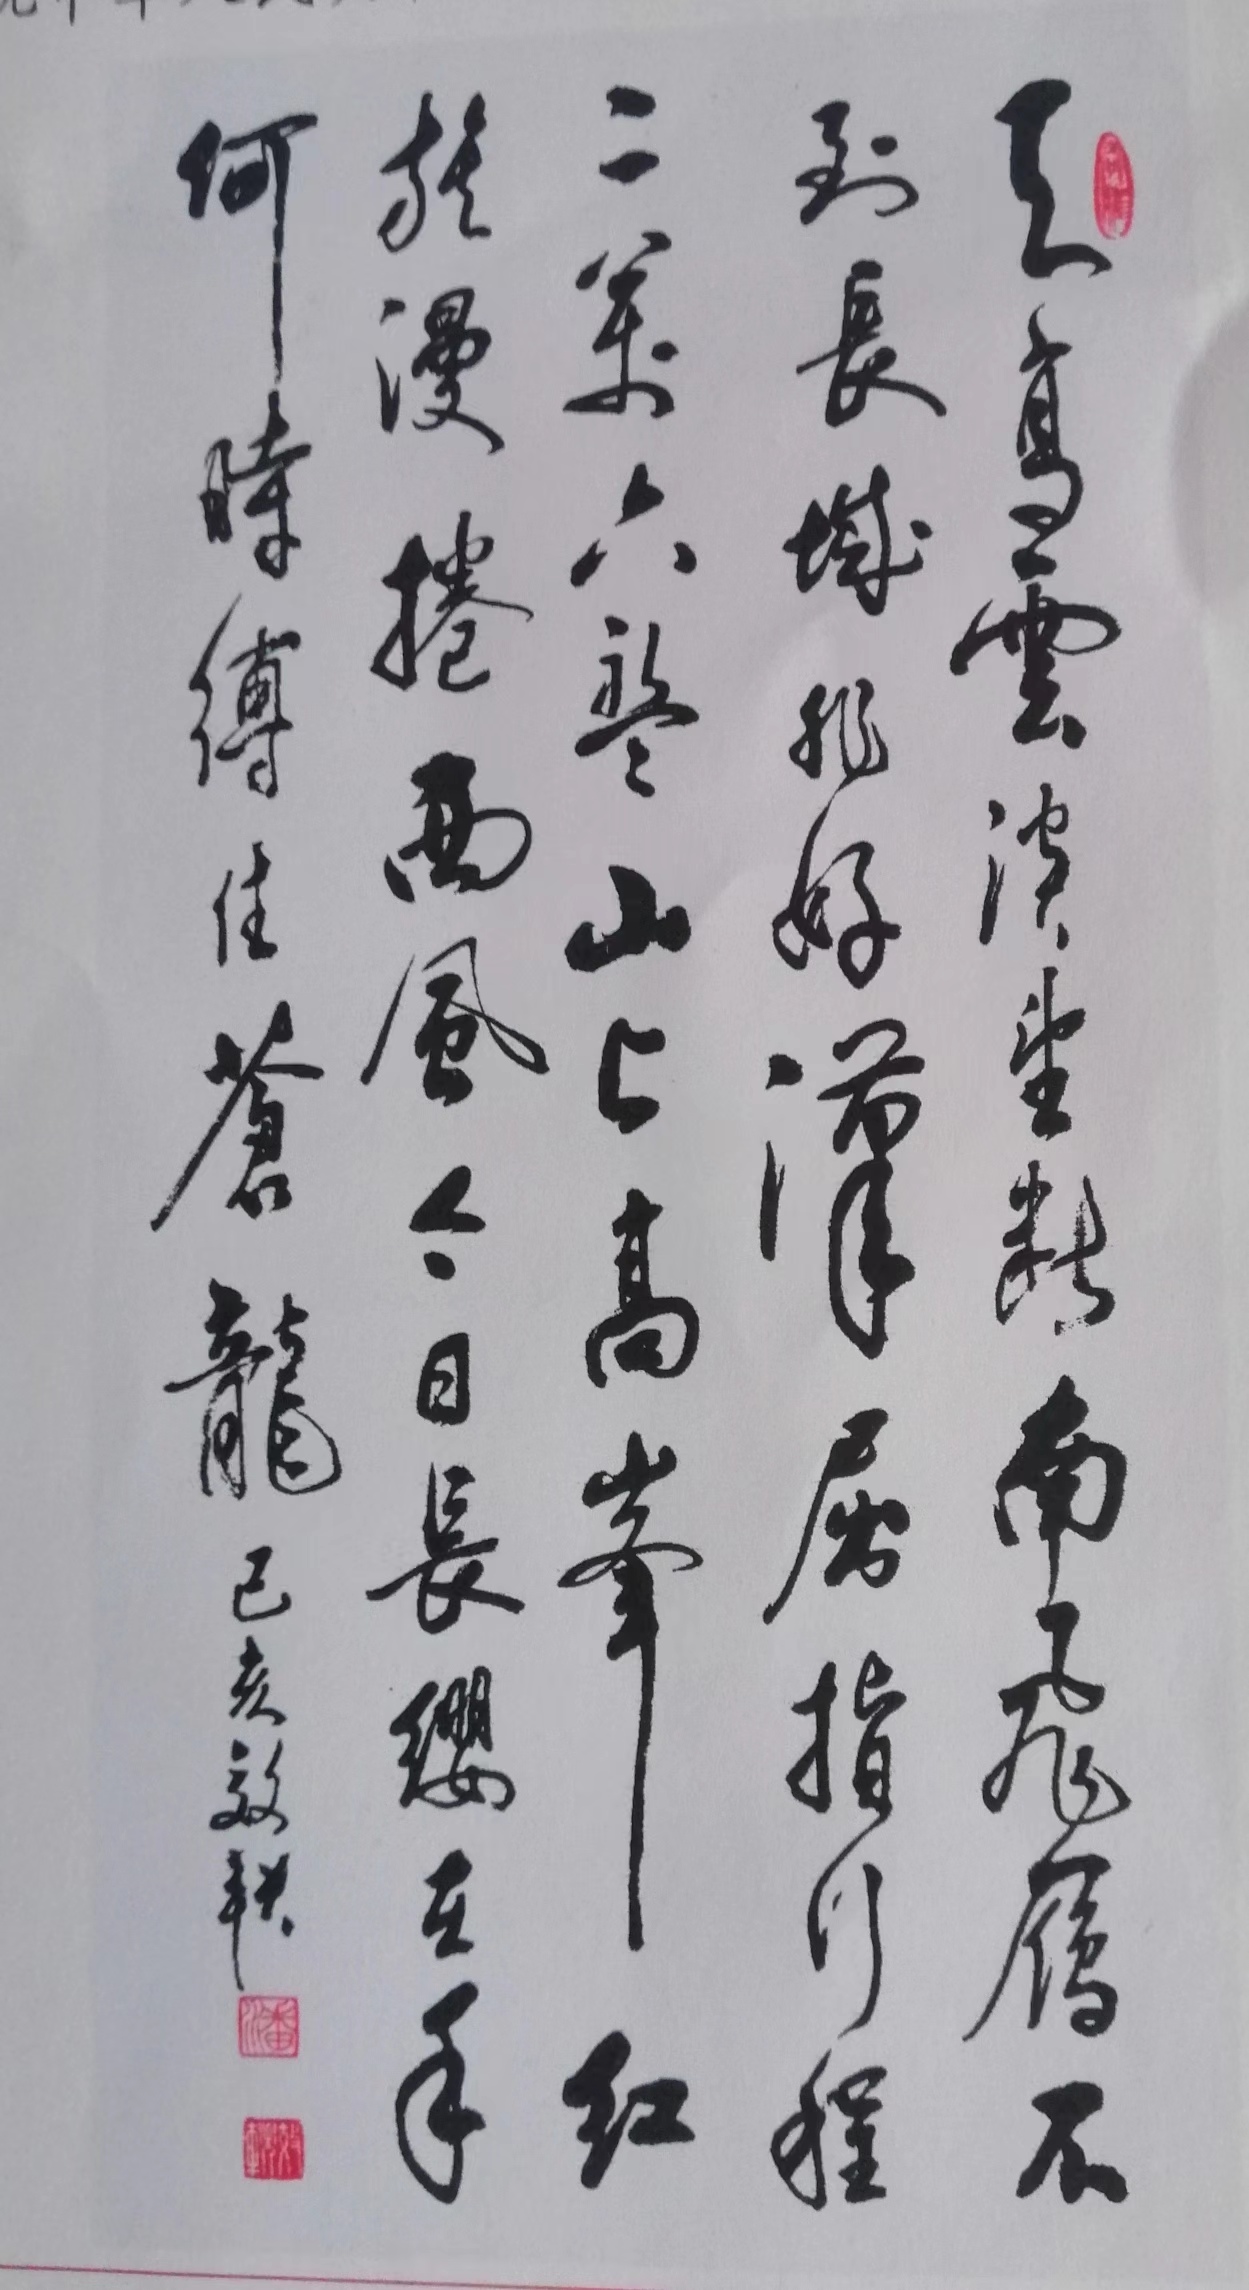 天高雲淡望斷南飛雁不
到長城非好漢屈指行程
二萬六盤山上高峰紅
旌漫捲西風今日長纓在手
何時縛住蒼龍己亥效耕
潘